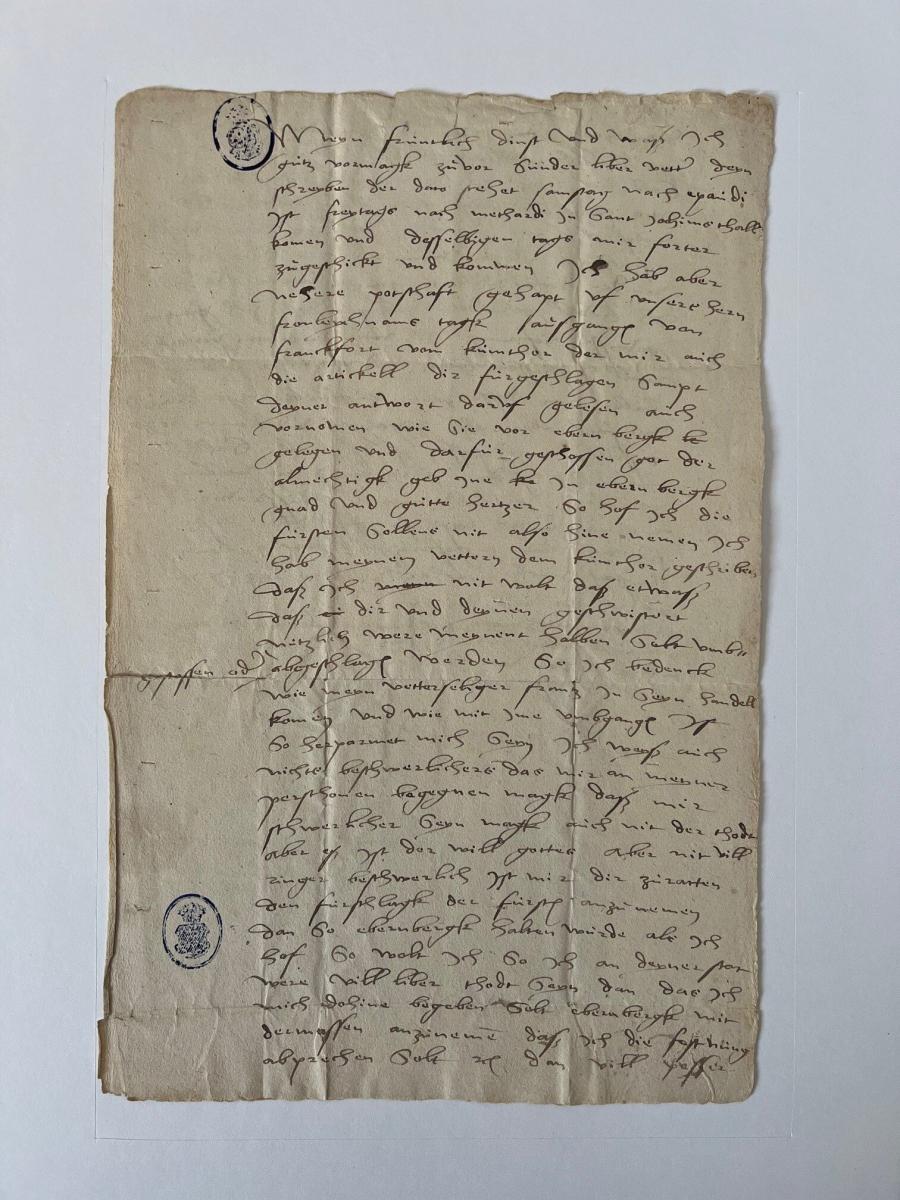 Meyn früntlich dinst und waß Ich
gütz vormagk zůvor Sünder liber vetter deyn
schreyben der dato stehet samstag nach exaudi
Ist freytags nach methardi In Sant Jochimsthall
komen und desselbigen tags mir forter
zůgeschickt und kommen Ich hab aber
nehere potschaft gehapt uf unsers hern
fronleychnams tagk ausgangen von
franckfort vom künthor der mir auch
die artickell dir fürgeschlagen Sampt
deyner antwort darůf gelesen auch
vornomen wie Sie vor ebernbergk
gelegen und darfür geschossen got der
almechtigk geb Ine In ebernbergk
gnad und gůtte hertzer So hof Ich die
fürsten Sollens nit also hine nemen Ich
hab meynen vettern dem künthor geschriben
daß Ich nit wolt daß etwaß
daß dir und deynen geschwistert
nützlich were meynent halben Solt umb
gstossen oder abgeschlagen werden So Ich bedenck
wie meyn vetterseliger frantz In Seyn handell
komen und wie mit Ime umbgangen Ist
So herparmet mich Seyn Ich weyß auch
nichts beschwerlichers das mir an meyner
persthonen begegnen magk daß mir
schwerlicher Seyn magk auch nit der thodt
aber eß Ist der will gottes aber nit vill
ringer beschwerlich Ist mir dir zůratten
den fürschlagk der fürsten anzůnemen
dan So ebernbergk halten würde als Ich
hof So wolt Ich So Ich an deyner stat
were vill liber thodt Seyn dan das Ich
mich dohine begeben Solt ebernbergk mit
dermassen anzůnemen daß Ich die festnüng
abprechen Solt dan vill pesser